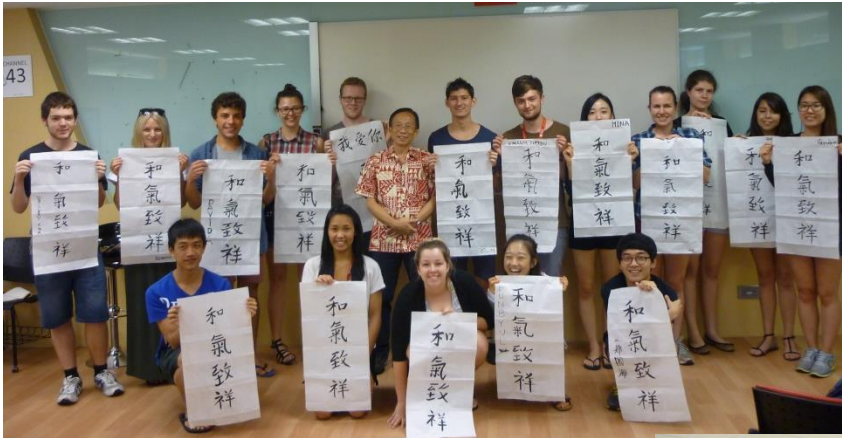 CHANNEL
43
和氣致祥
和氣致祥
和氣致祥
和氣致祥
我愛你
和氣致祥
和氣致祥
MINA
和氣致祥
和氣致祥
和氣致祥
和氣致祥
和氣致祥
和氣致祥
和氣致祥
和氣致祥
和氣致祥